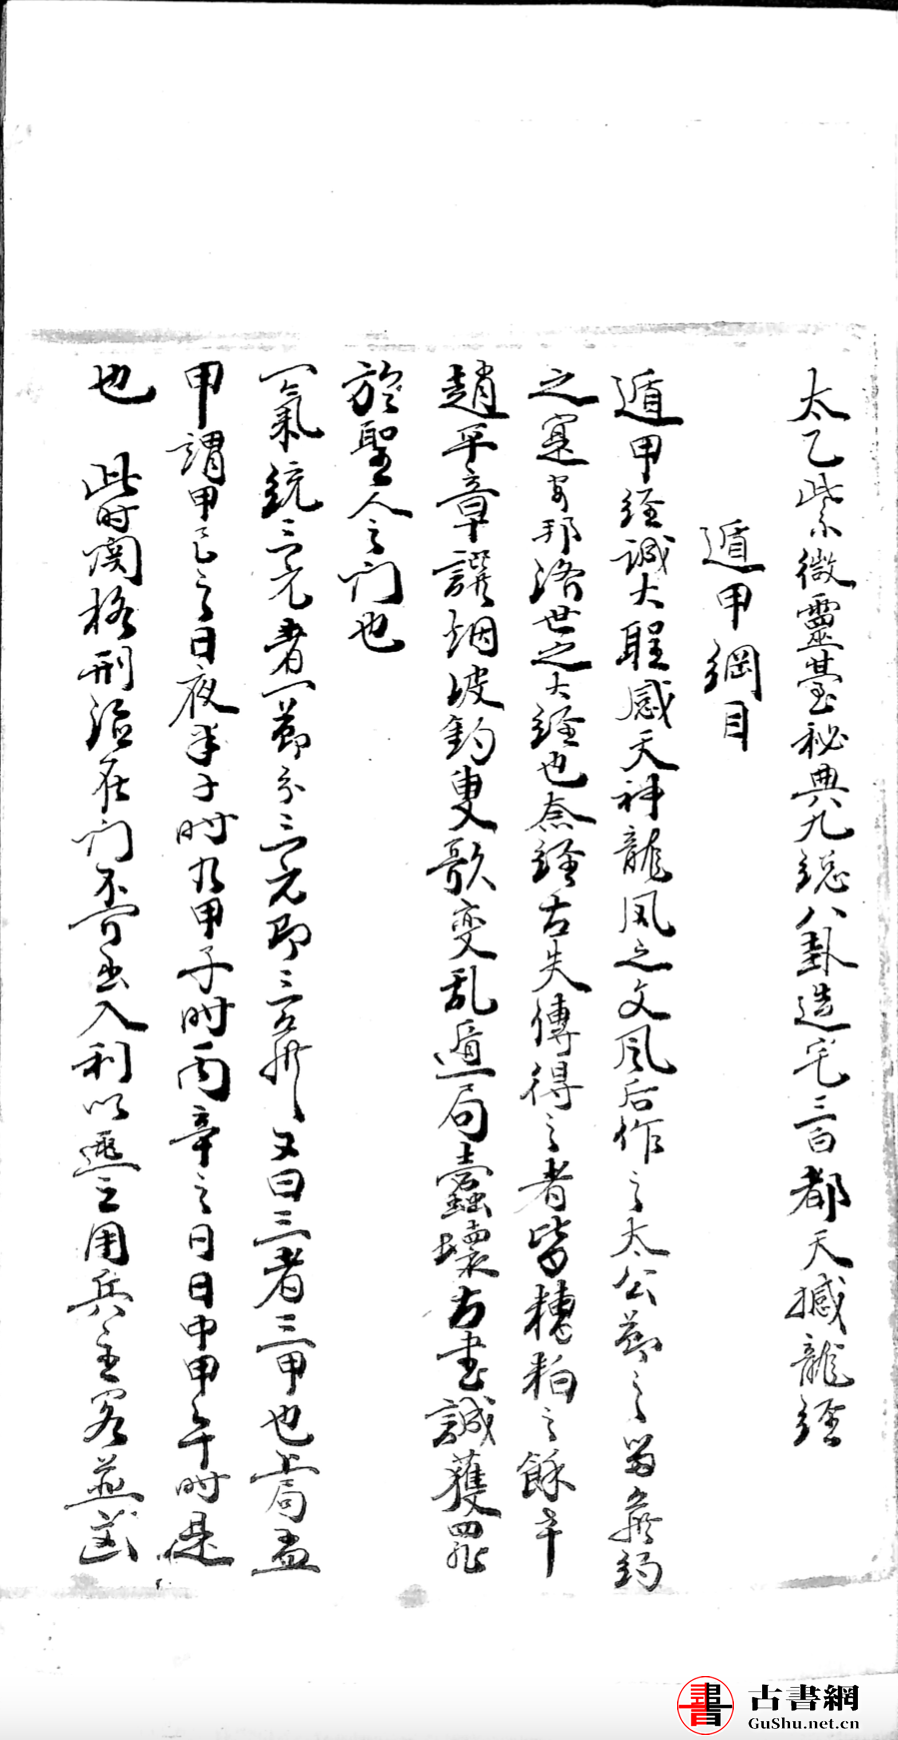 太乙紫微靈臺秘典九總八卦造宅三白都天撼龍經
遁甲綱目
遁甲經誠大聖感天神龍鳳之文風后作之太公節之留
之寔安邦治世之大經也奈經古失傳得之者皆糟粕之餘
趙平章譔烟坡釣叟歌变乱遁局蠹壞古書誠獲罪
於聖人之门也
一氣統三元者一節分三元即三三者三甲也局孟
甲謂甲己之日夜半子时乃甲子时丙辛之日日中甲午时是
也 此时関格刑在门不可出入利以用兵主客並凶
古書網
GuShu.net.cn